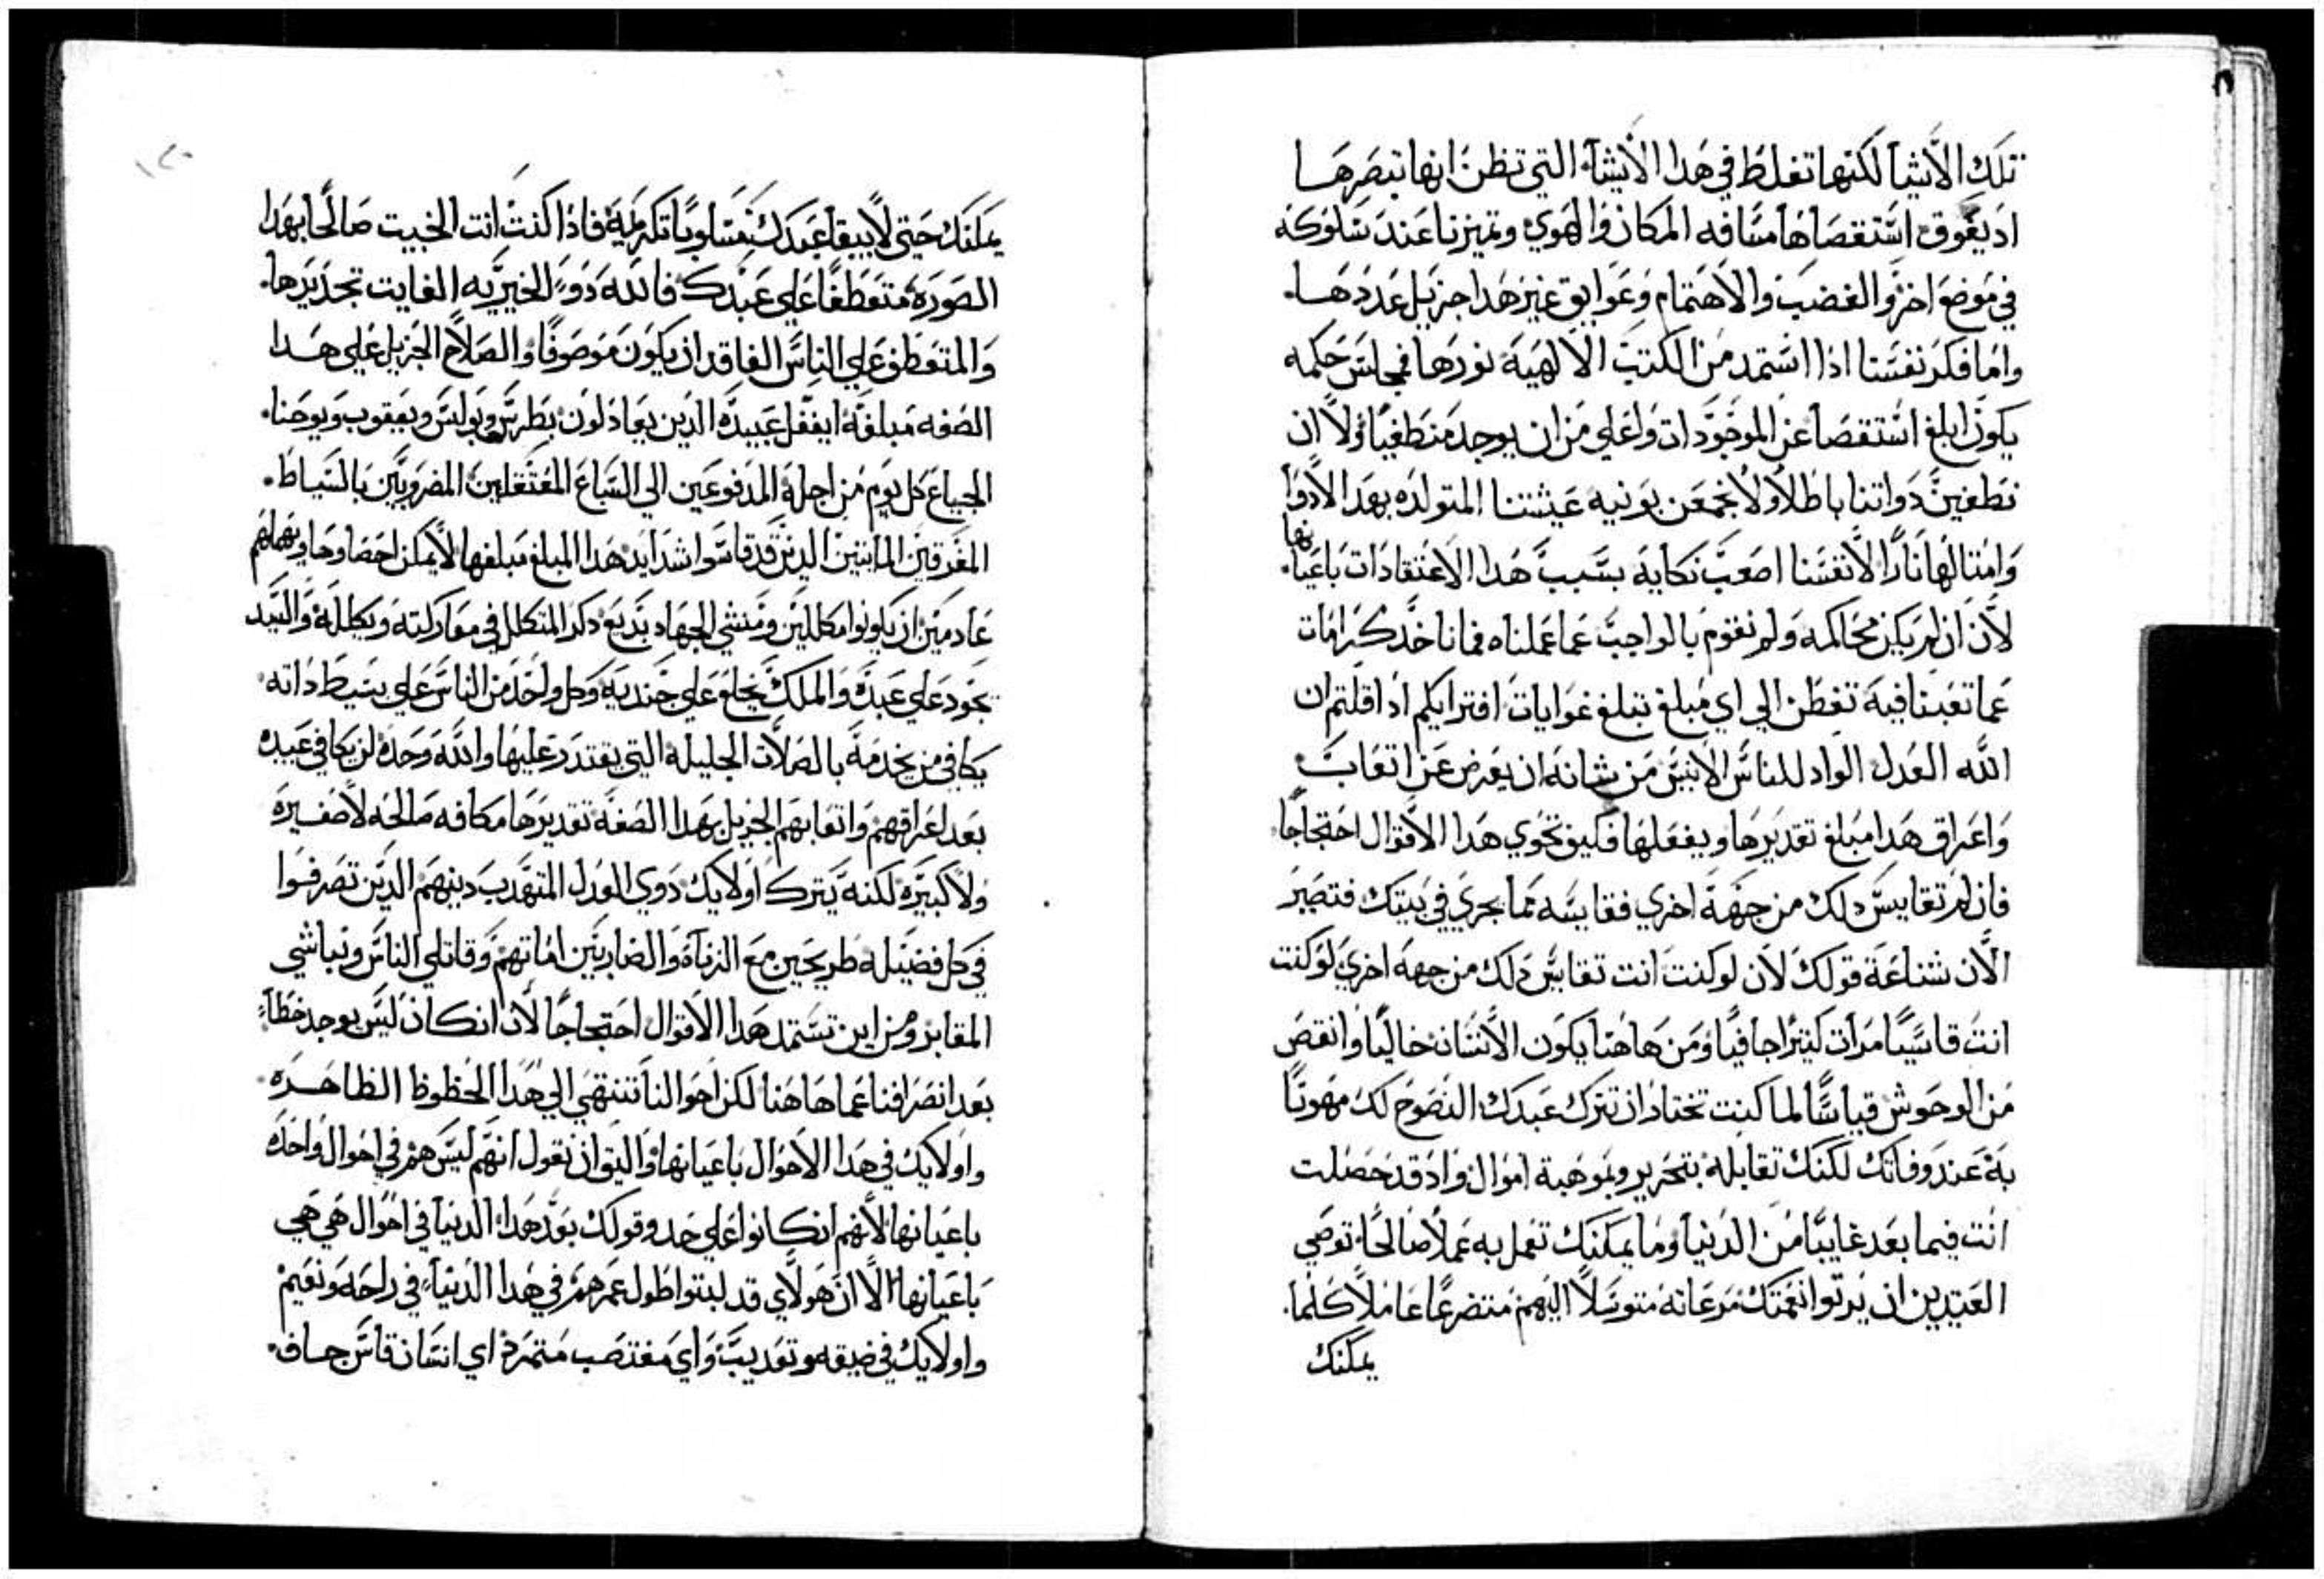 تلك الاشيا لكنها تغلط في هدا الاشياء التي تظن انها تبصرها
اد يعوق استقصاها مسافه المكان والهوي وتميزنا عند سلوكه
في موضع اخر والغضب والاهتمام وعوايق غير هدا جزيل عددها.
واما فكر نفسنا ادا استمد من الكتب الالهيه نورها في مجلس حكمه
يكون ابلغ استقصا عن الموجودات واعلي من ان يوجد منطغيا فلا ان
نطغين دواتنا باطلا ولا نجمعن بونيه عيشتنا المتولده بهدا الادوا
وامتالها نارا لانفسنا اصعب نكايه بسبب هدا الاعتقادات باعيانها.
لان ان لم يكن محاكمه ولم نقوم بالواجب عما عملناه فما ناخد كرامات
عما تعبنا فيه تفطن الي اي مبلغ تبلغ غوايات افترايكم ادا قلتم ان
الله العدل الواد للناس الانيس من شانه ان يعرض عن اتعاب
واعراق هدا مبلغ تقديرها ويغفلها فكيف تحوي هدا الاقوال احتجاجا
فان لم تقايس دلك من جهة اخري فقايسه مما يجري في بيتك فتصير
الان شناعة قولك لان لو كنت انت تقايس دلك من جهه اخري لو كنت
انت قاسيا مرات كتيرا جافيا ومن هاهنا يكون الانسان خاليا وانقص
من الوحوش قياسا لما كنت تختار ان تترك عبدك النصوح لك مهونا
به عند وفاتك لكنك تقابله بتحرير وبموهبة اموال واد قد حصلت
انت فيما بعد غايبا من الدنيا وما يمكنك تعمل به عملا صالحا توصي
العتيدين ان يرتوا نعمتك مرعاته متوسلا اليهم متضرعا عاملا كلما.
يمكنك
يمكنك حتي لا يبقا عبدك مسلوبا تكرمة فادا كنت انت الخبيت صالحا بهدا
الصورة متعطفا علي عبدك فالله دو الخيريه الغايت تحديدها.
والمتعطف علي الناس الفاقد ان يكون موصوفا والصلاح الجزيل علي هدا
الصفه مبلغه ايغفل عبيده الدين يعادلون بطرس وبولس ويعقوب ويوحنا.
الجياع كل يوم من اجله المدفوعين الي السباع المعتقلين المضروبين بالسياط.
المغرقين المايتين الدين قد قاسوا شدايد هدا المبلغ مبلغها لا يمكن احصاوها ويهملهم
عادمين ان يكونوا مكاللين ومنشي الجهاد يديع دكر المتكلل في معاركته ويكلله والسيد
يجود علي عبده والملك يخلع علي جنديه وكل واحد من الناس علي بسيط داته
يكافي من يخدمة بالصلات الجليله التي يقتدر عليها والله وحده لن يكافي عبيده
بعد اعراقهم واتعابهم الجزيل بهدا الصفة تقديرها مكافه صالحه لا صغيرة
ولا كبيره لكنه يترك اولايك دوي العدل المتهدب دينهم الدين تصرفوا
في كل فضيله طريحين مع الزناة والضاربين اماتهم وقاتلي الناس ونباشي
المقابر ومن اين تستمد هدا الاقوال احتجاجا لان ان كان ليس يوجد خطا
بعد انصرافنا عما هاهنا لكن احوالنا تنتهي الي هدا الحظوظ الظاهره
واولايك في هدا الاحوال باعيانها واليق ان نقول انهم ليس هم في احوال واحده
باعيانها لانهم ان كانوا علي حد وقولك بعد هدا الدنيا في احوال هي هي
باعيانها الا ان هولاي قد لبتوا طول عمرهم في هدا الدنيا في راحه ونعيم
واولايك في ضيقه وتعديب واي مغتصب متمرد اي انسان قاس جاف.